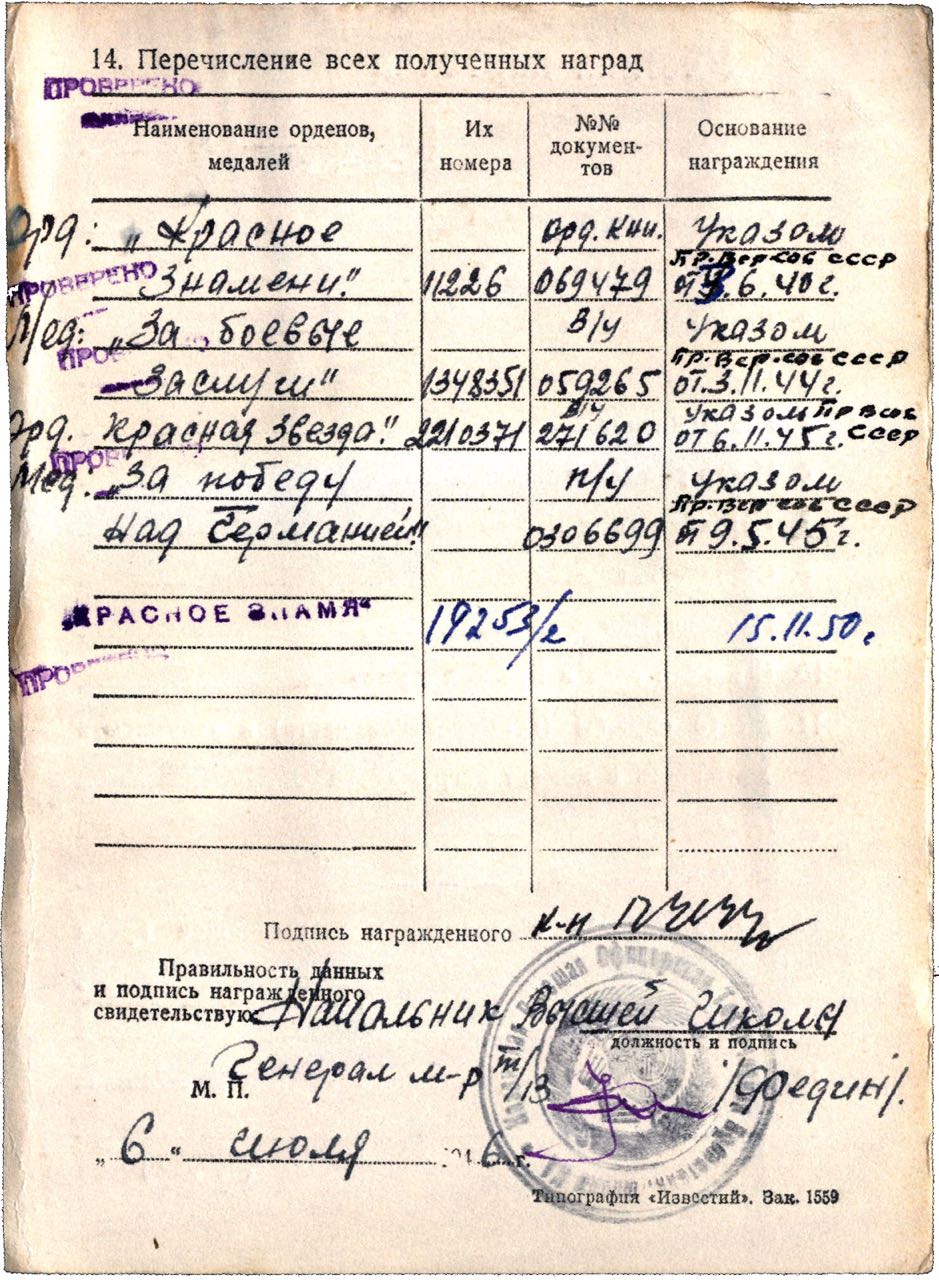 14. Перечисление всех полученных наград
ПРОВЕРЕНО
Наименование орденов, медалей
Их номера
№№ докумен-тов
Основание награждения
Орд: „Красное орд. кни. Указом
Пр. Вер сов СССР
ПРОВЕРЕНО
Знамени." 11226 069479 от 6.40г.
Мед: „За боевые в/у Указом
Пр. Вер. сов СССР
Заслуги" 1348351 059265 от 3.11.44г.
в/у Указом Пр В сов
Орд. Красная Звезда." 2210371 271620 от 6.11.45г. СССР
Мед: „За победу п/у Указом
Пр. Вер сов СССР
Над Германией." 0306699 от 9.5.45г.
„КРАСНОЕ ЗНАМЯ" 19253/2 15.11.50г
ПРОВЕРЕНО
Подпись награжденного к-н
Правильность данных
и подпись награжденного
свидетельствую: Начальник Высшей Школы
должность и подпись
Генерал м-р т/в /Федин/.
М. П.
„6" июля 1946г.
Типография «Известий». Зак. 1559